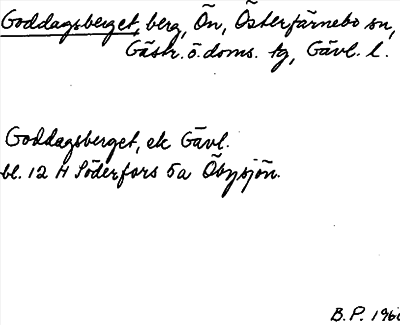 Goddagsberget, berg, Ön, Österfärnebo sn,
Gästr. ö. doms. tg, Gävl. l.
Goddagsberget, ek Gävl.
bl. 12 H Söderfors 5a Öbysjön.
B.P. 196